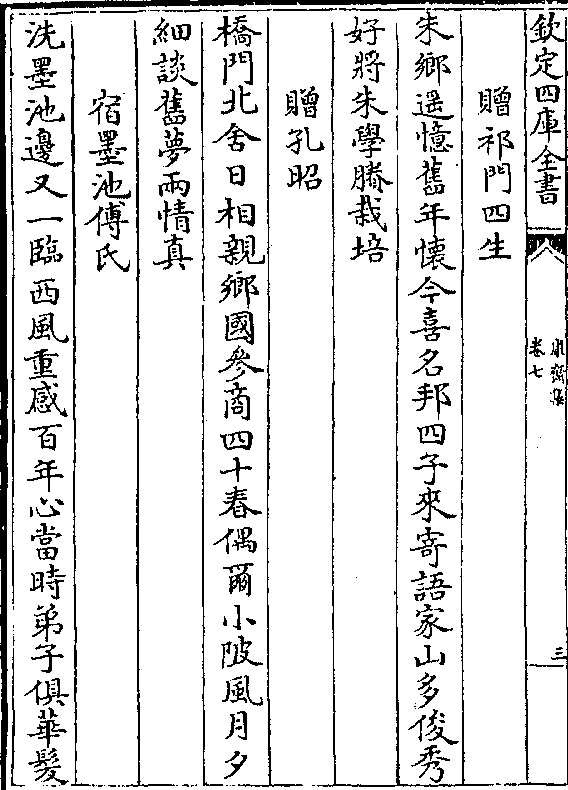 欽定四庫全書
康齋集
卷七
三
贈祁門四生
朱鄉遥憶舊年懷今喜名邦四子來寄語家山多俊秀
好將朱學賸栽培
贈孔昭
橋門北舍日相親鄉國參商四十春偶爾小陂風月夕
細談舊夢兩情真
宿墨池傅氏
洗墨池邊又一臨西風重感百年心當時弟子俱華髮